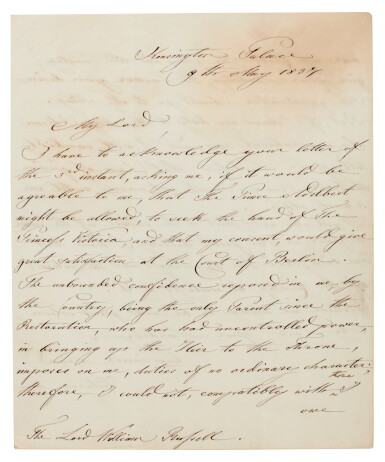 Kensington Palace
9th May 1837
My Lord
I have to acknowledge your letter of
the 3rd instant, asking me, if it would be
agreeable to me, that The Prince Adelbert
might be allowed, to seek the hand of The
Princess Victoria, and that my consent, would give
great satisfaction at the Court of Berlin.
The unbounded confidence reposed in me by
the Country, being the only Parent since the
Restoration, who has had uncontrolled power,
in bringing up the Heir to the Throne,
imposes on me, duties of no ordinary character:
therefore, I could not, compatibly with
one
The Lord William Russell.